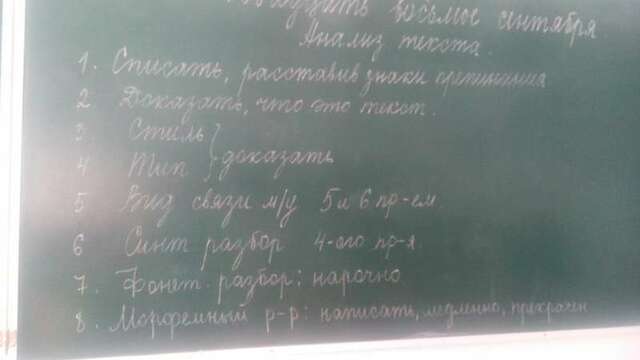 восьмое сентября
Анализ текста.
1. Списать, расставив знаки препинания
2 Доказать, что это текст.
3 Стиль
4 Тип } доказать
5 Вид связи м/у 5 и 6 пр-ем.
6 Синт разбор 4-ого пр-я.
7. Фонет. разбор: нарочно
8. Морфемный р-р: написать, медленно, прекрасен